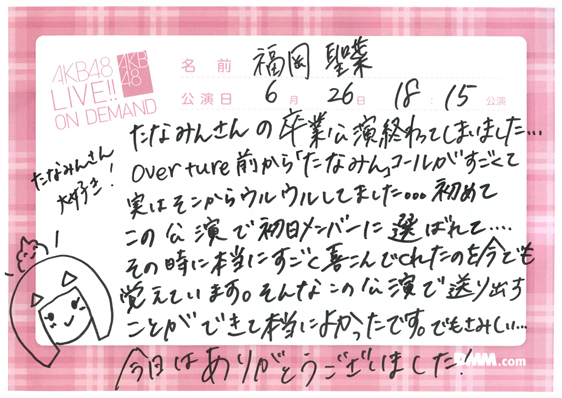 AKB48
LIVE!!
ON DEMAND
AKB
48
名前 福岡 聖菜
公演日 6月 26日 18:15公演
たなみんさんの卒業公演終わってしまいました…
overture前から「たなみん」コールがすごくて
実はそこからウルウルしてました…初めて
この公演で初日メンバーに選ばれて…
その時に本当にすごく喜こんでくれたのを今でも
覚えています。そんなこの公演で送り出す
ことができて本当によかったです。でもさみしい…
今日はありがとうございました!
たなみんさん
大好き!
DMM.com